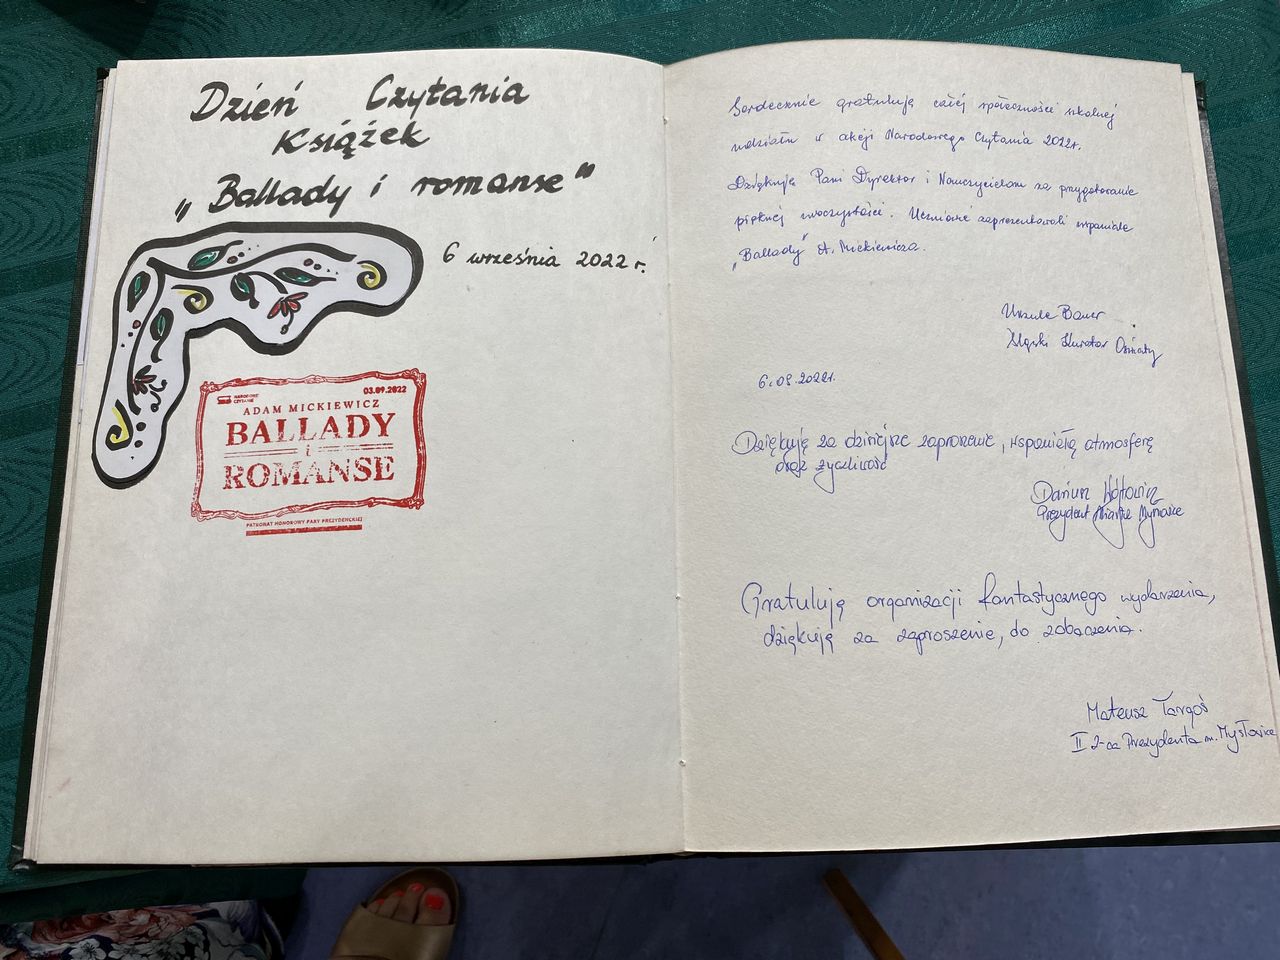 Dzień Czytania
Książek
„Ballady i romanse”
6 września 2022 r.
NARODOWE
CZYTANIE
03.09.2022
ADAM MICKIEWICZ
BALLADY
i
ROMANSE
PATRONAT HONOROWY PARY PREZYDENCKIEJ
Serdecznie gratuluję całej społeczności szkolnej
udziału w akcji Narodowego Czytania 2022r.
Dziękuję Pani Dyrektor i Nauczycielom za przygotowanie
pięknej uroczystości. Uczniowie zaprezentowali wspaniale
„Ballady” A. Mickiewicza.
Urszula Bauer
Śląski Kurator Oświaty
6.09.2022r.
Dziękuję za dzisiejsze zaproszenie, wspaniałą atmosferę
oraz życzliwość
Dariusz Wójtowicz
Prezydent Miasta Mysłowice
Gratuluję organizacji fantastycznego wydarzenia,
dziękuję za zaproszenie, do zobaczenia.
Mateusz Targoś
II Z-ca Prezydenta m. Mysłowice